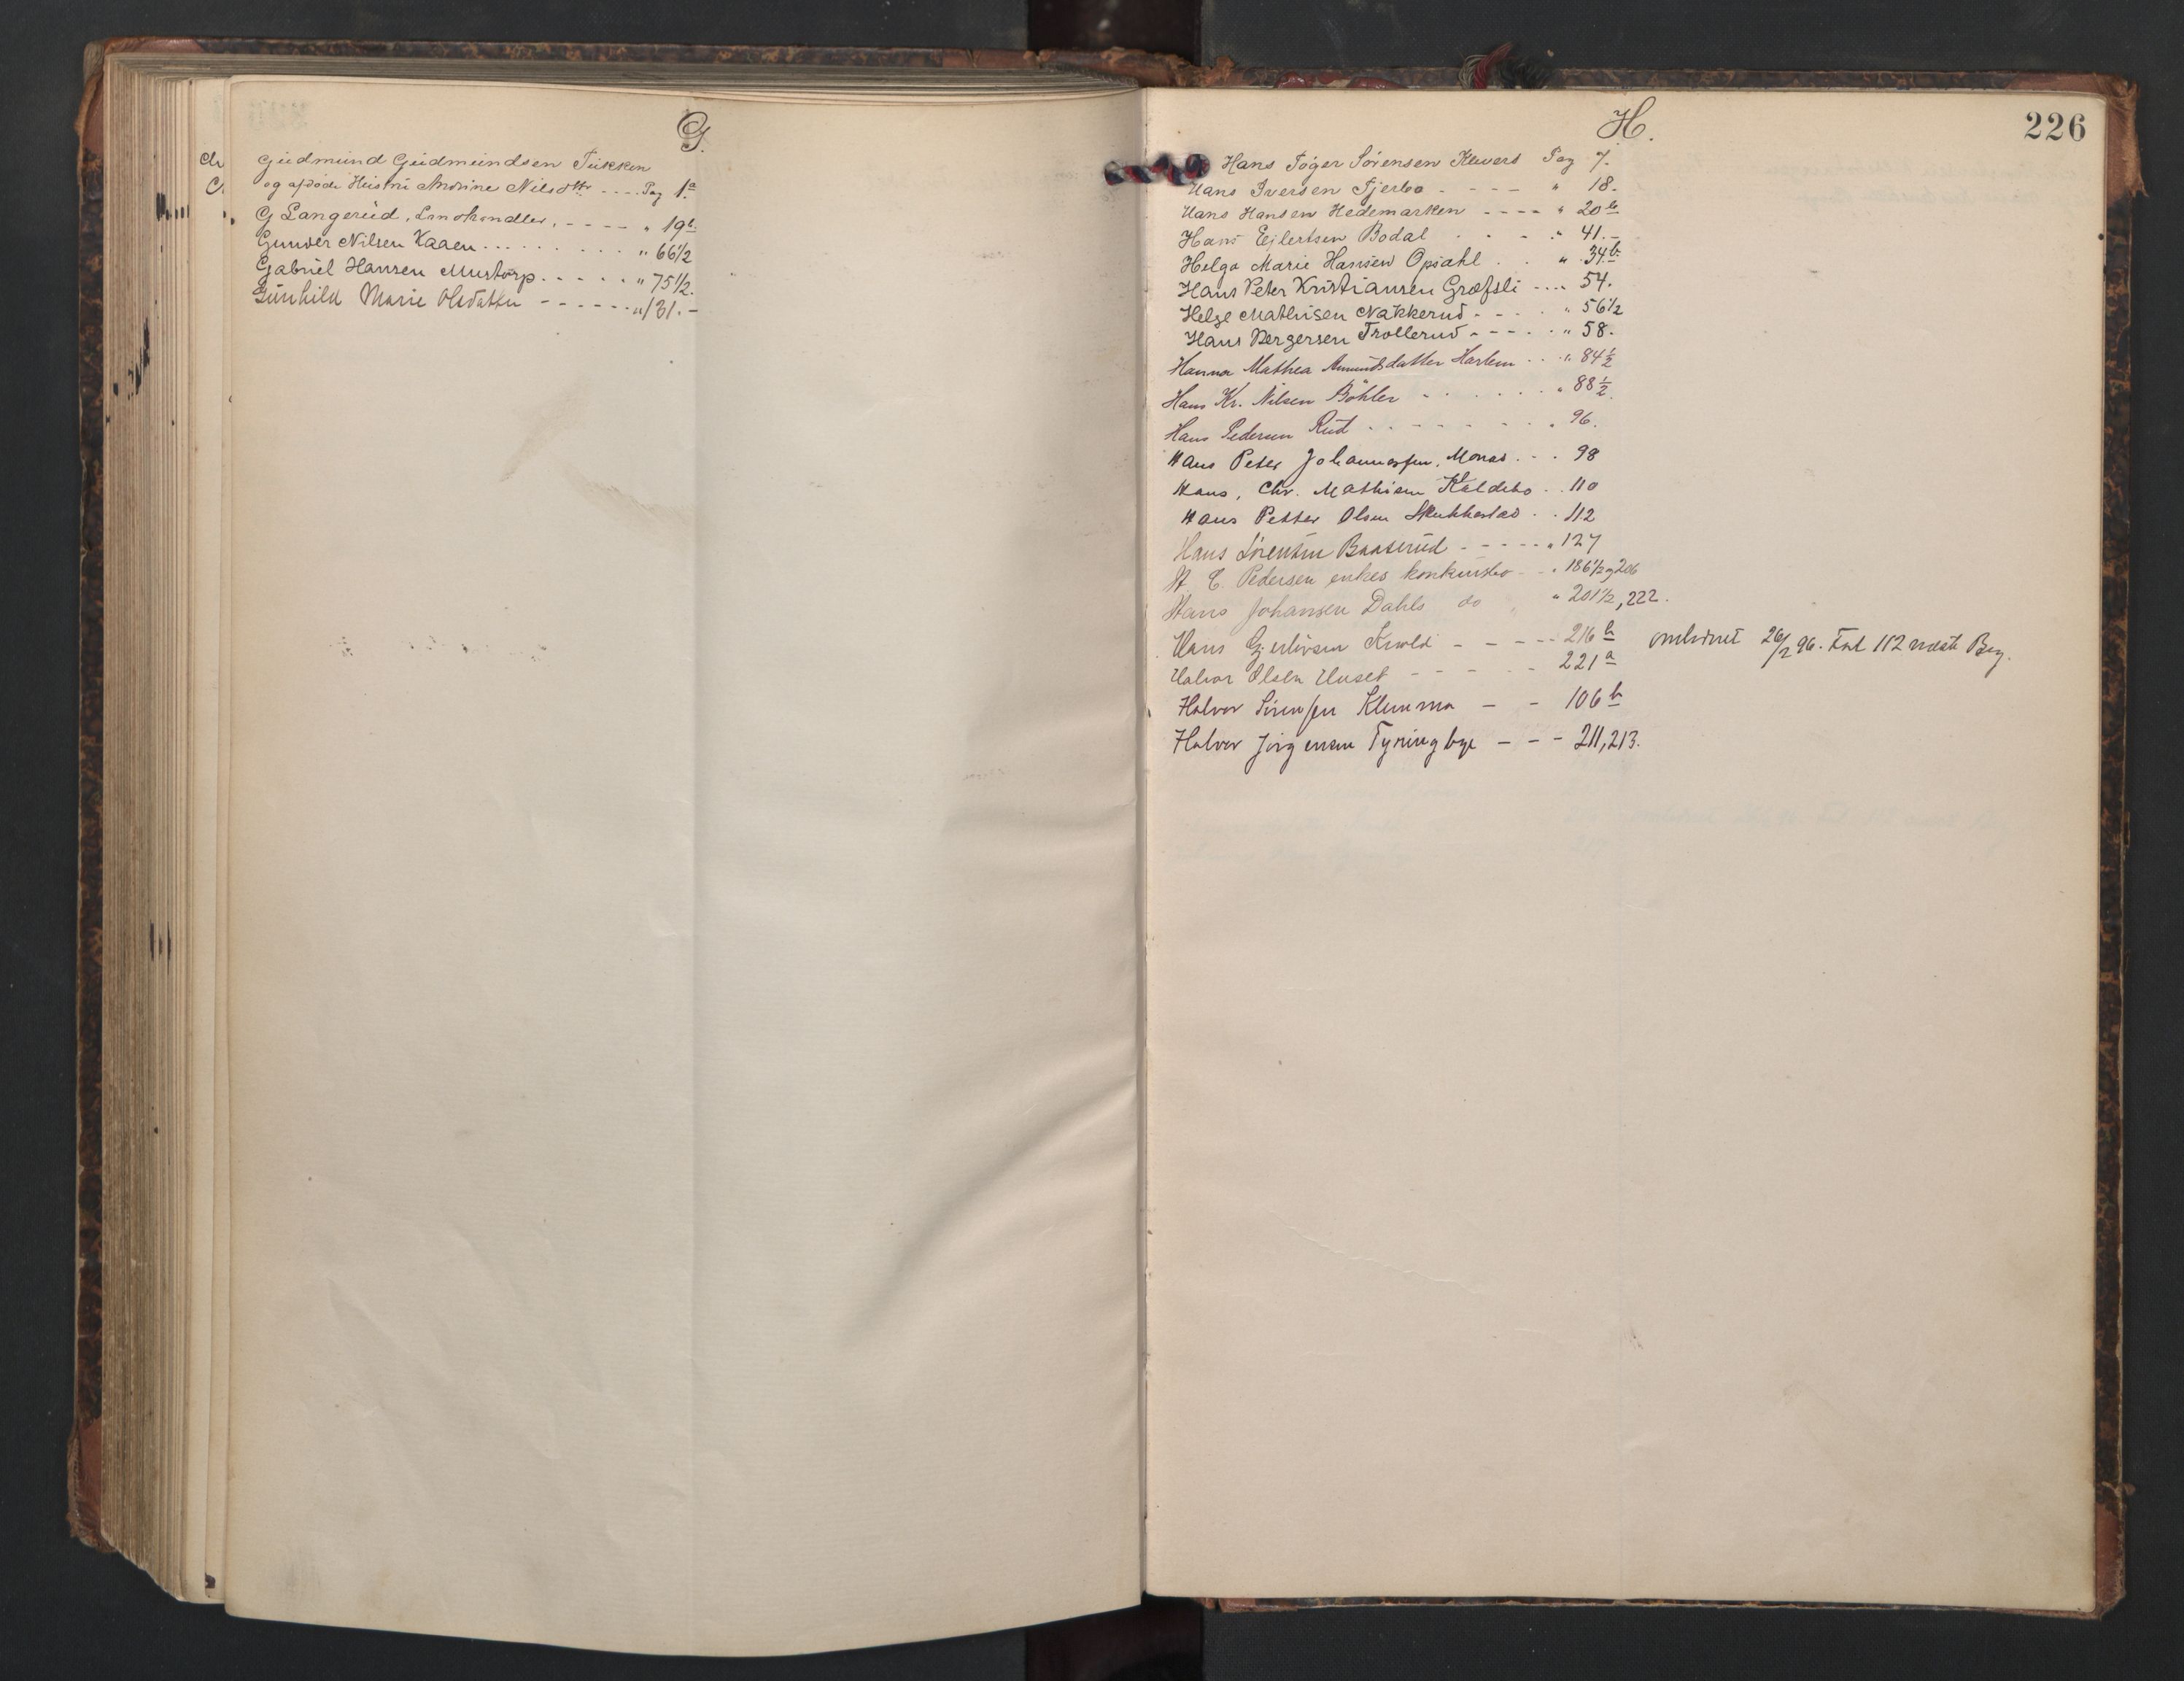 G.
Gudmund Gudmundsen Tukken
og afdøde Hustru Andrine Nilsdttr - - - - Pag 1a
G Langerud, Landhandler, - - - - - " 19b.
Gunder Nilsen Kaaen . . . . . . . . . " 66 1/2
Gabriel Hansen Mustorp . . - - . . " 75 1/2.
Gunhild Marie Olsdatter - - - - - - " 131. -
H.
226
Hans Toger Sørensen Pag 7.
Hans Iversen Tjerbo - - - - " 18.
Hans Hansen Hedemarken - - - - " 20 b
Hans Ejlertsen Bodal . - - - " 41. -
Helga Marie Hansen Opsahl . . " 34.b.
Hans Peter Kristiansen Græfsli . . . . 54.
Helge Mathisen Nakkerud - - - . " 56 1/2
Hans Bergersen Trollerud - - - - . " 58.
Hanna Mathea Amundsdatter Harlem . . " 84 1/2
Hans Kr. Nilsen Böhler - . . . . . " 88 1/2.
Hans Pedersen Rud - - - - - - - . " 96.
Hans Peter Johannessen, Monas . . . 98
Hans, Chr. Mathisen Kaldebo . . 110
Hans Petter Olsen . . 112
Hans Lorentsen Braaterud - - - - - " 127
H C. Pedersen enkes konkursbo - - " 186 1/2 og 206
Hans Johansen Dahls do " " 201 1/2, 222.
Hans - - - - 216 b 26/2 96. Fol 112 næste Bog.
Halvor Olsen Huset - - - - - 221 a
Halvor Sørensen Klemma - - 106 b
Halvor Jörgensen Tyringbye - - - 211, 213.